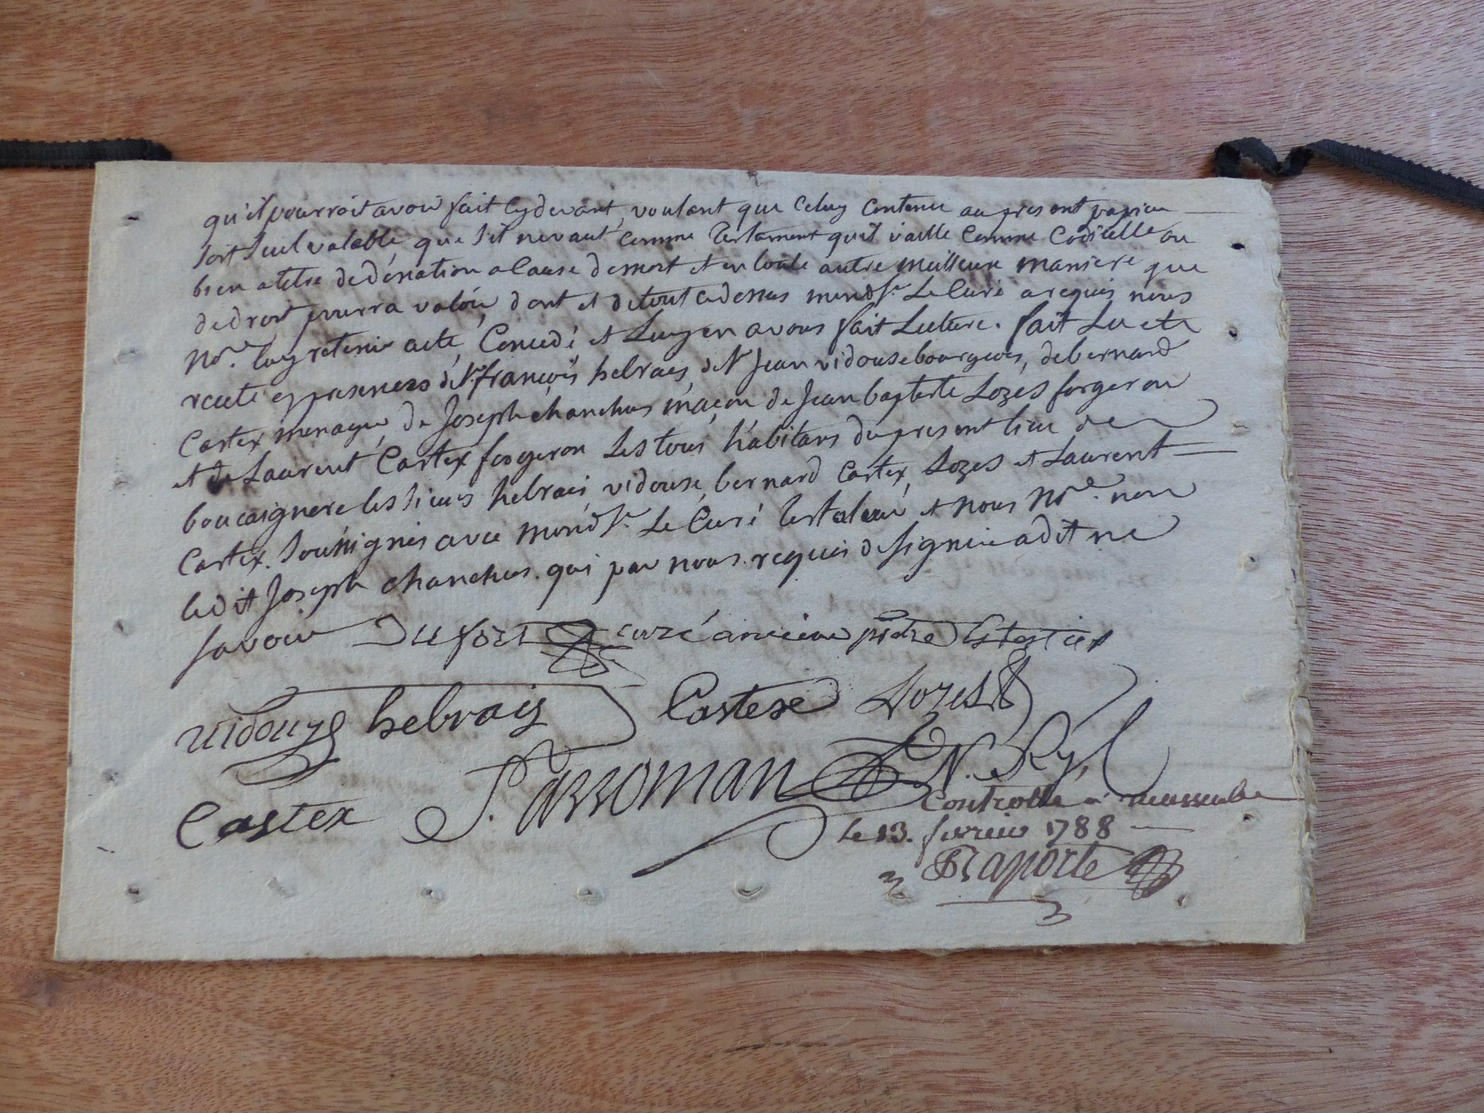 qu'il pourroit avoir fait cy devant, voulant que celuy contenu au present papier
soit seul valable, que s'il ne vaut comme testament qu'il vaille comme codicille ou
bien a titre de donation a cause de mort et en toute autre meilleure maniere que
de droit pourra valoir, dont et de tout ce dessus mond sr. Le Curé a requis nous
Nore. luy retenir acte, Concedé et Luy en avons fait Lecture. fait Lu et
recité en presences de sr. françois hebrais, de sr. Jean vidouse bourgeois, de bernard
Castex menager, de Joseph chanchus maçon de Jean baptiste Lozes forgeron
et de Laurent Castex forgeron Les tous habitans du present lieu de
boucaignere les sieurs hebrais, vidouse, bernard Castex, Lozes et Laurent
Castex. soussignés avec mond sr. Le Curé testateur et nous Nore. non
ledit Joseph chanchus. qui par nous requis de signer a dit ne
savoir Dufort curé ancien prêtre testateur
vidouze hebrais Castex Lozes
Castex J. Arroman N. Ryl
Controllé a
le 13. fevrier 1788
Laporte